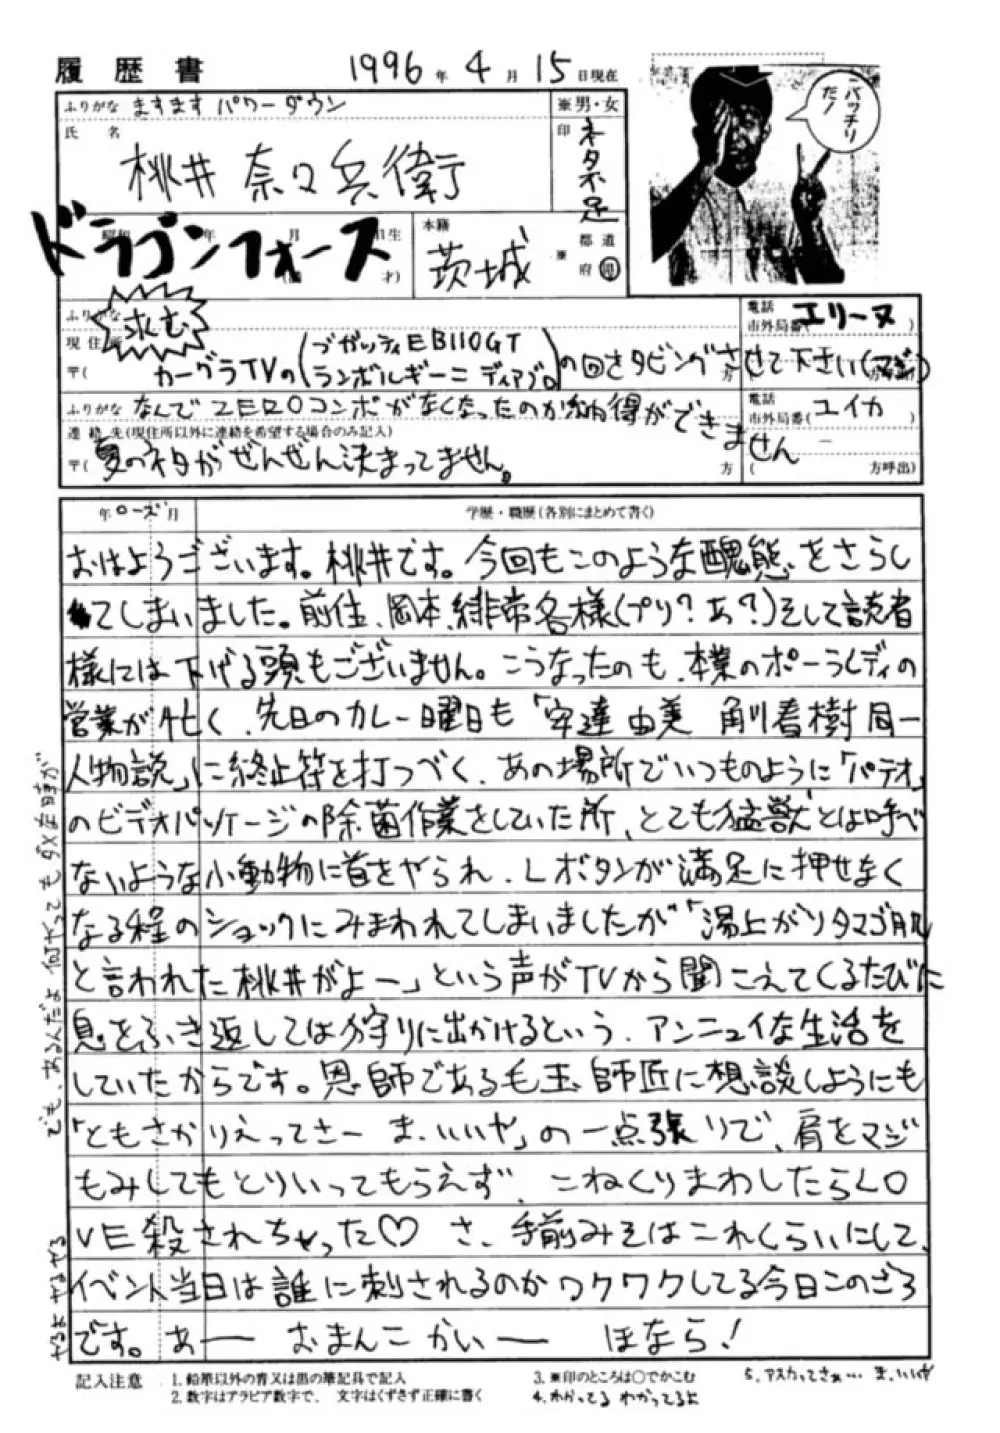 履歴書
1996年4月15日現在
ふりがな ますます パワーダウン
※男・女
氏名
印
桃井 奈々兵衛
ネタ不足
バッチリだ!
ドラゴンフォース
年 月 日生
才)
本籍
茨城
※
都道府県
ふりがな
求む
現住所
〒(
カーグラTVの(ブガッティEB110GT
ランボルギーニ ディアブロ)の回をダビングさせて下さい(マジ)
電話
市外局番( エリーヌ )
方
方呼出)
ふりがな なんでZEROコンボがなくなったのか納得ができません
電話
市外局番( ユイカ )
連絡先(現住所以外に連絡を希望する場合のみ記入)
〒( 夏のネタがぜんぜん決まってません。
方
( 方呼出)
年 ローズ 月
学歴・職歴(各別にまとめて書く)
おはようございます。桃井です。今回もこのような醜態をさらし
てしまいました。前住、岡本、緋常各様(プリ?あ?)そして読者
様には下げる頭もございません。こうなったのも、本業のポーラレディの
営業が忙く、先日のカレー曜日も「安達由美 角川春樹同一
人物説」に終止符を打つべく、あの場所でいつものように「パテオ」
のビデオパッケージの除菌作業をしていた所、とても猛獣とは呼べ
ないような小動物に首をやられ、Lボタンが満足に押せなく
なる程のショックにみまわれてしまいましたが「湯上がりタマゴ肌
と言われた桃井がよー」という声がTVから聞こえてくるたびに
息をふき返しては狩りに出かけるという、アンニュイな生活を
していたからです。恩師である毛玉師匠に想談しようにも
「ともさかりえってさー ま、いいや」の一点張りで、肩をマジ
もみしてもとりいってもらえず、こねくりまわしたらLO
VE殺されちゃった♡ さ、手前みそはこれくらいにして、
イベント当日は誰に刺されるのかワクワクしてる今日このごろ
です。あー おまんこかいー ほなら!
でも、あるんだよ 何やってもダメな時が
やるよ やるやる
記入注意
1. 鉛筆以外の青又は黒の筆記具で記入
2. 数字はアラビア数字で、文字はくずさず正確に書く
3. ※印のところは○でかこむ
4. わかってる わかってるよ
5. アスカってさぁ… ま、いいや